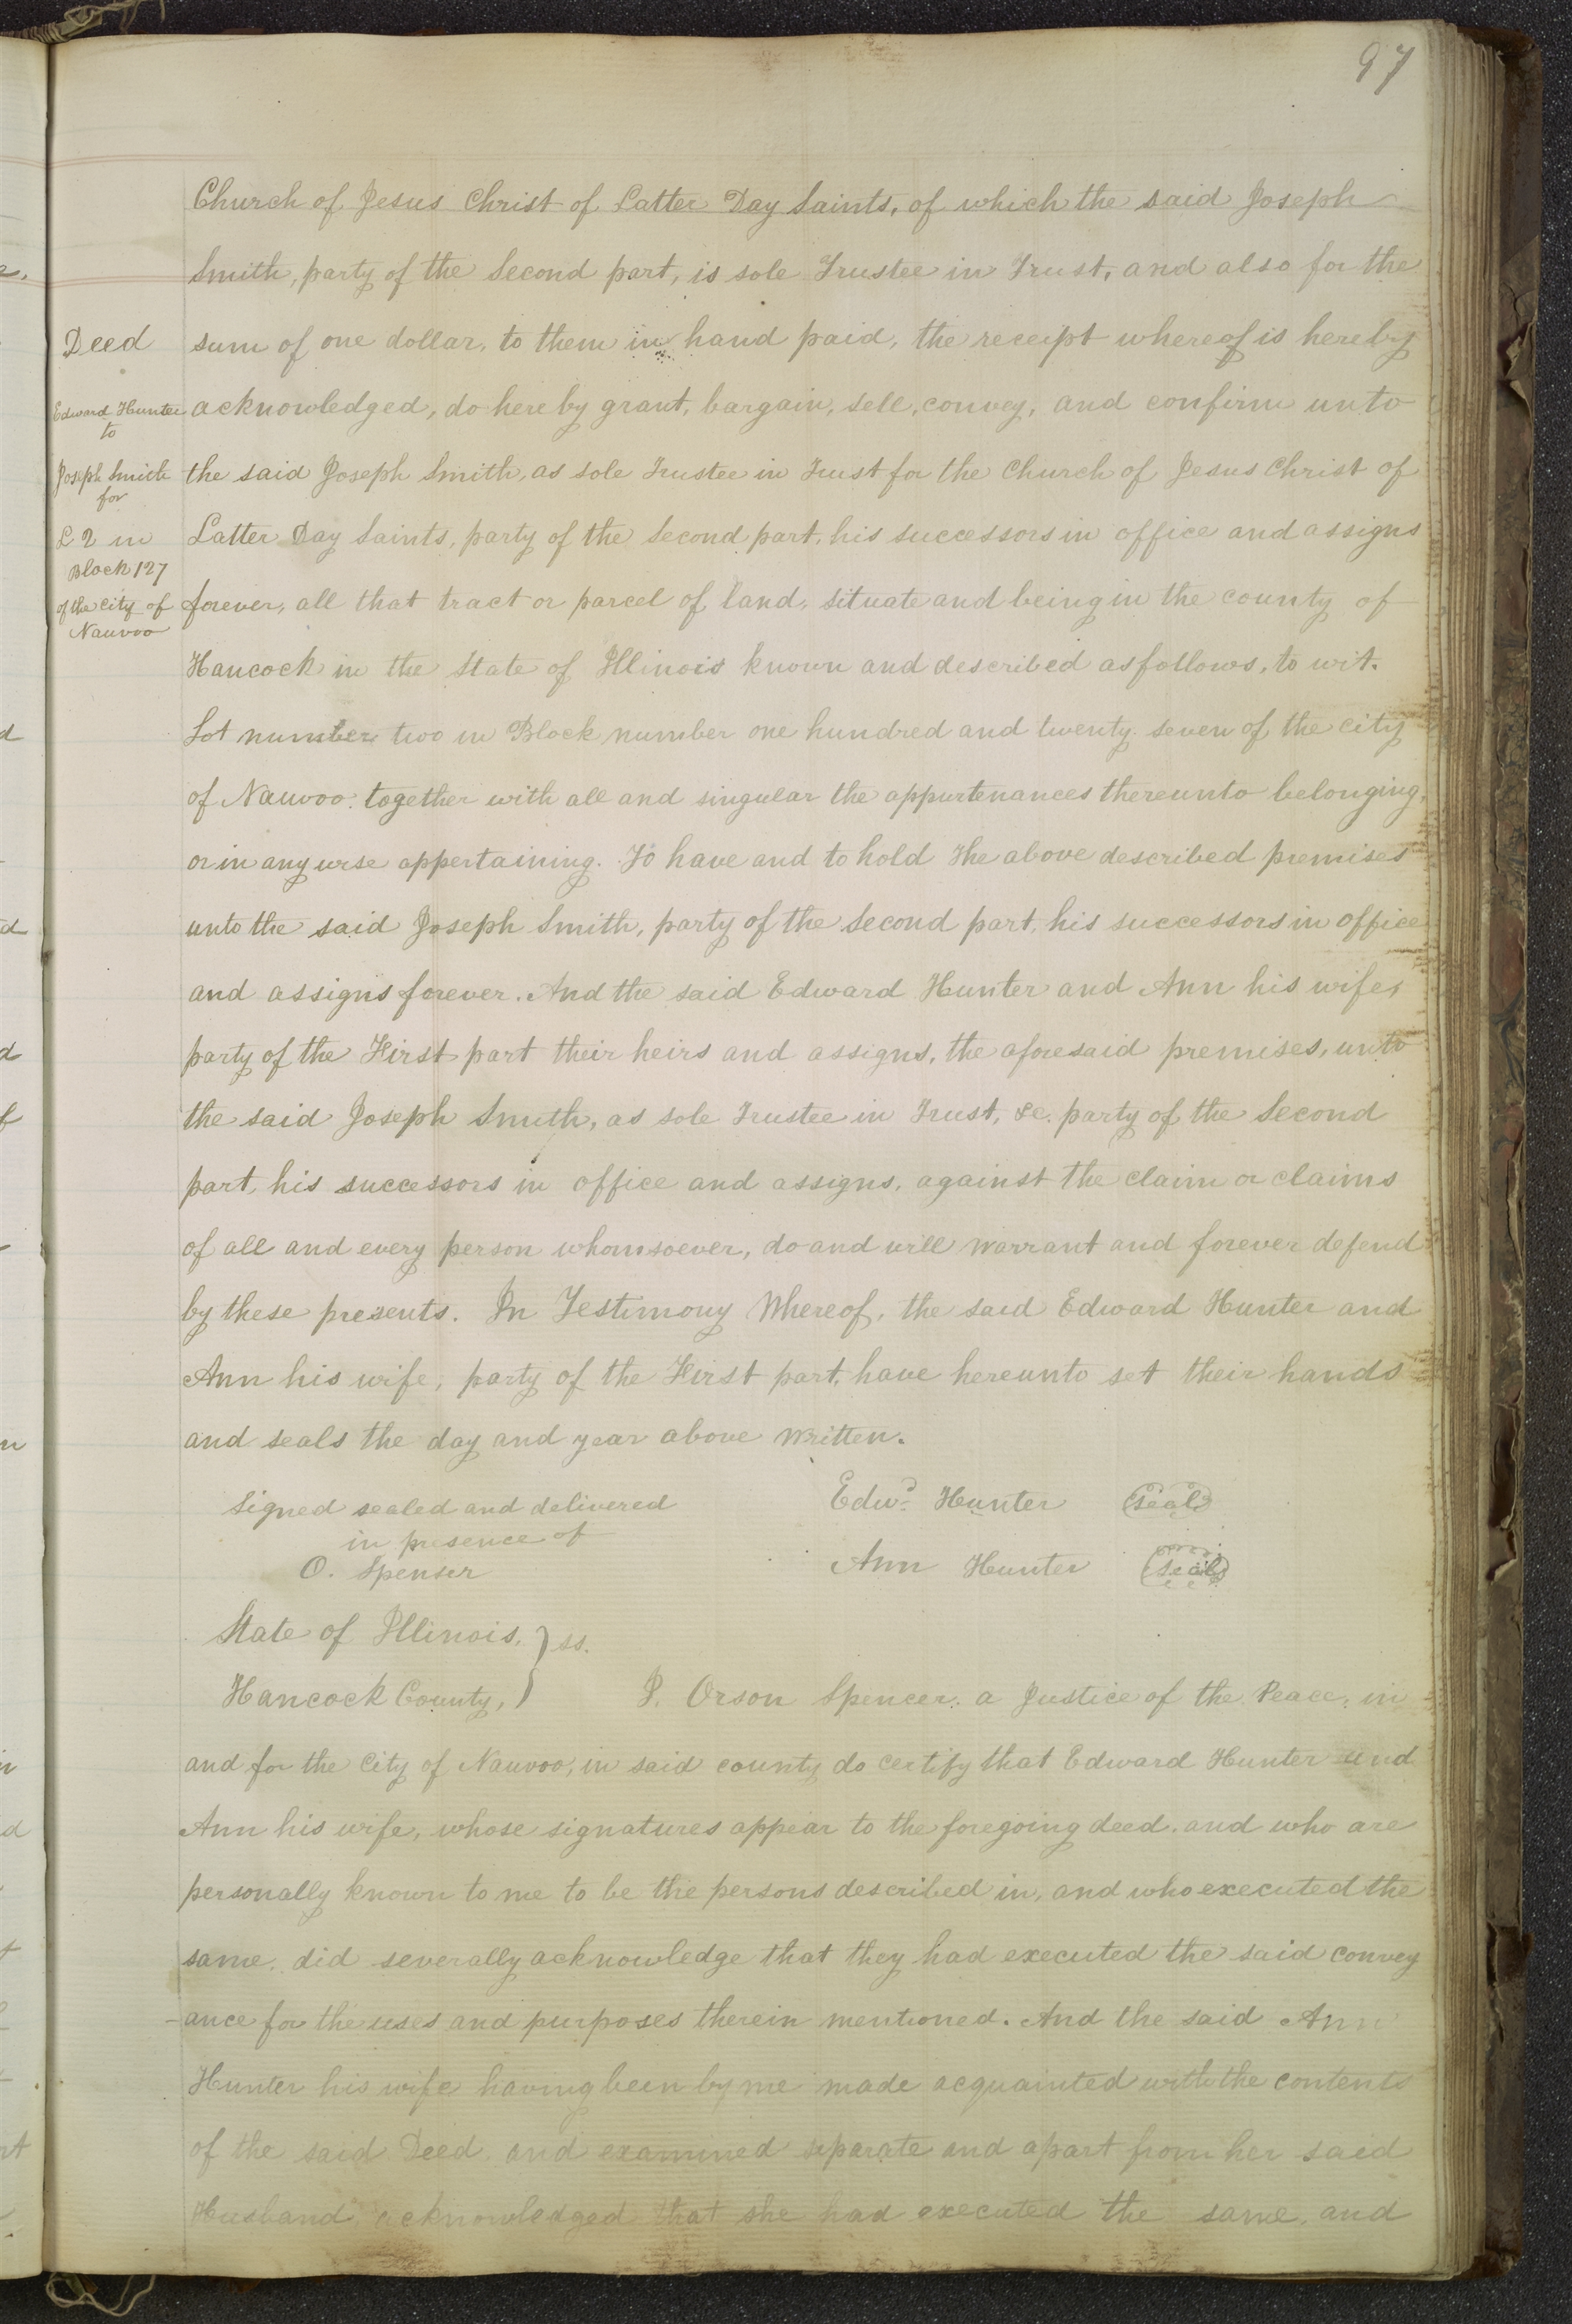 97
Church of Jesus Christ of Latter Day Saints, of which the said Joseph
Smith, party of the Second part, is sole Trustee in Trust, and also for the
Deed
sum of one dollar, to them in hand paid, the receipt whereof is hereby
Edward Hunter
to
acknowledged, do hereby grant, bargain, sell, convey, and confirm unto
Joseph Smith
for
the said Joseph Smith, as sole Trustee in Trust for the Church of Jesus Christ of
L 2 in
Block 127
Latter Day Saints, party of the Second part, his successors in office and assigns
of the City of
Nauvoo
forever, all that tract or parcel of land, situate and being in the county of
Hancock in the State of Illinois known and described as follows, to wit.
Lot number two in Block number one hundred and twenty seven of the city
of Nauvoo. together with all and singular the appurtenances thereunto belonging,
or in any wise appertaining. To have and to hold The above described premises
unto the said Joseph Smith, party of the Second part, his successors in office
and assigns forever. And the said Edward Hunter and Ann his wife,
party of the First part their heirs and assigns, the aforesaid premises, unto
the said Joseph Smith, as sole Trustee in Trust, &c. party of the Second
part, his successors in office and assigns, against the claim or claims
of all and every person whomsoever, do and will warrant and forever defend
by these presents. In Testimony Whereof, the said Edward Hunter and
Ann his wife, party of the First part, have hereunto set their hands
and seals the day and year above written.
Signed sealed and delivered
in presence of
O. Spenser
Edwd. Hunter (Seal)
Ann Hunter (Seal)
State of Illinois, } ss.
Hancock County, } I. Orson Spencer, a Justice of the Peace, in
and for the City of Nauvoo, in said county do certify that Edward Hunter and
Ann his wife, whose signatures appear to the foregoing deed. and who are
personally known to me to be the persons described in, and who executed the
same. did severally acknowledge that they had executed the said convey
-ance for the uses and purposes therein mentioned. And the said Ann
Hunter his wife having been by me made acquainted with the contents
of the said Deed and examined separate and apart from her said
Husband, acknowledged that she had executed the same, and